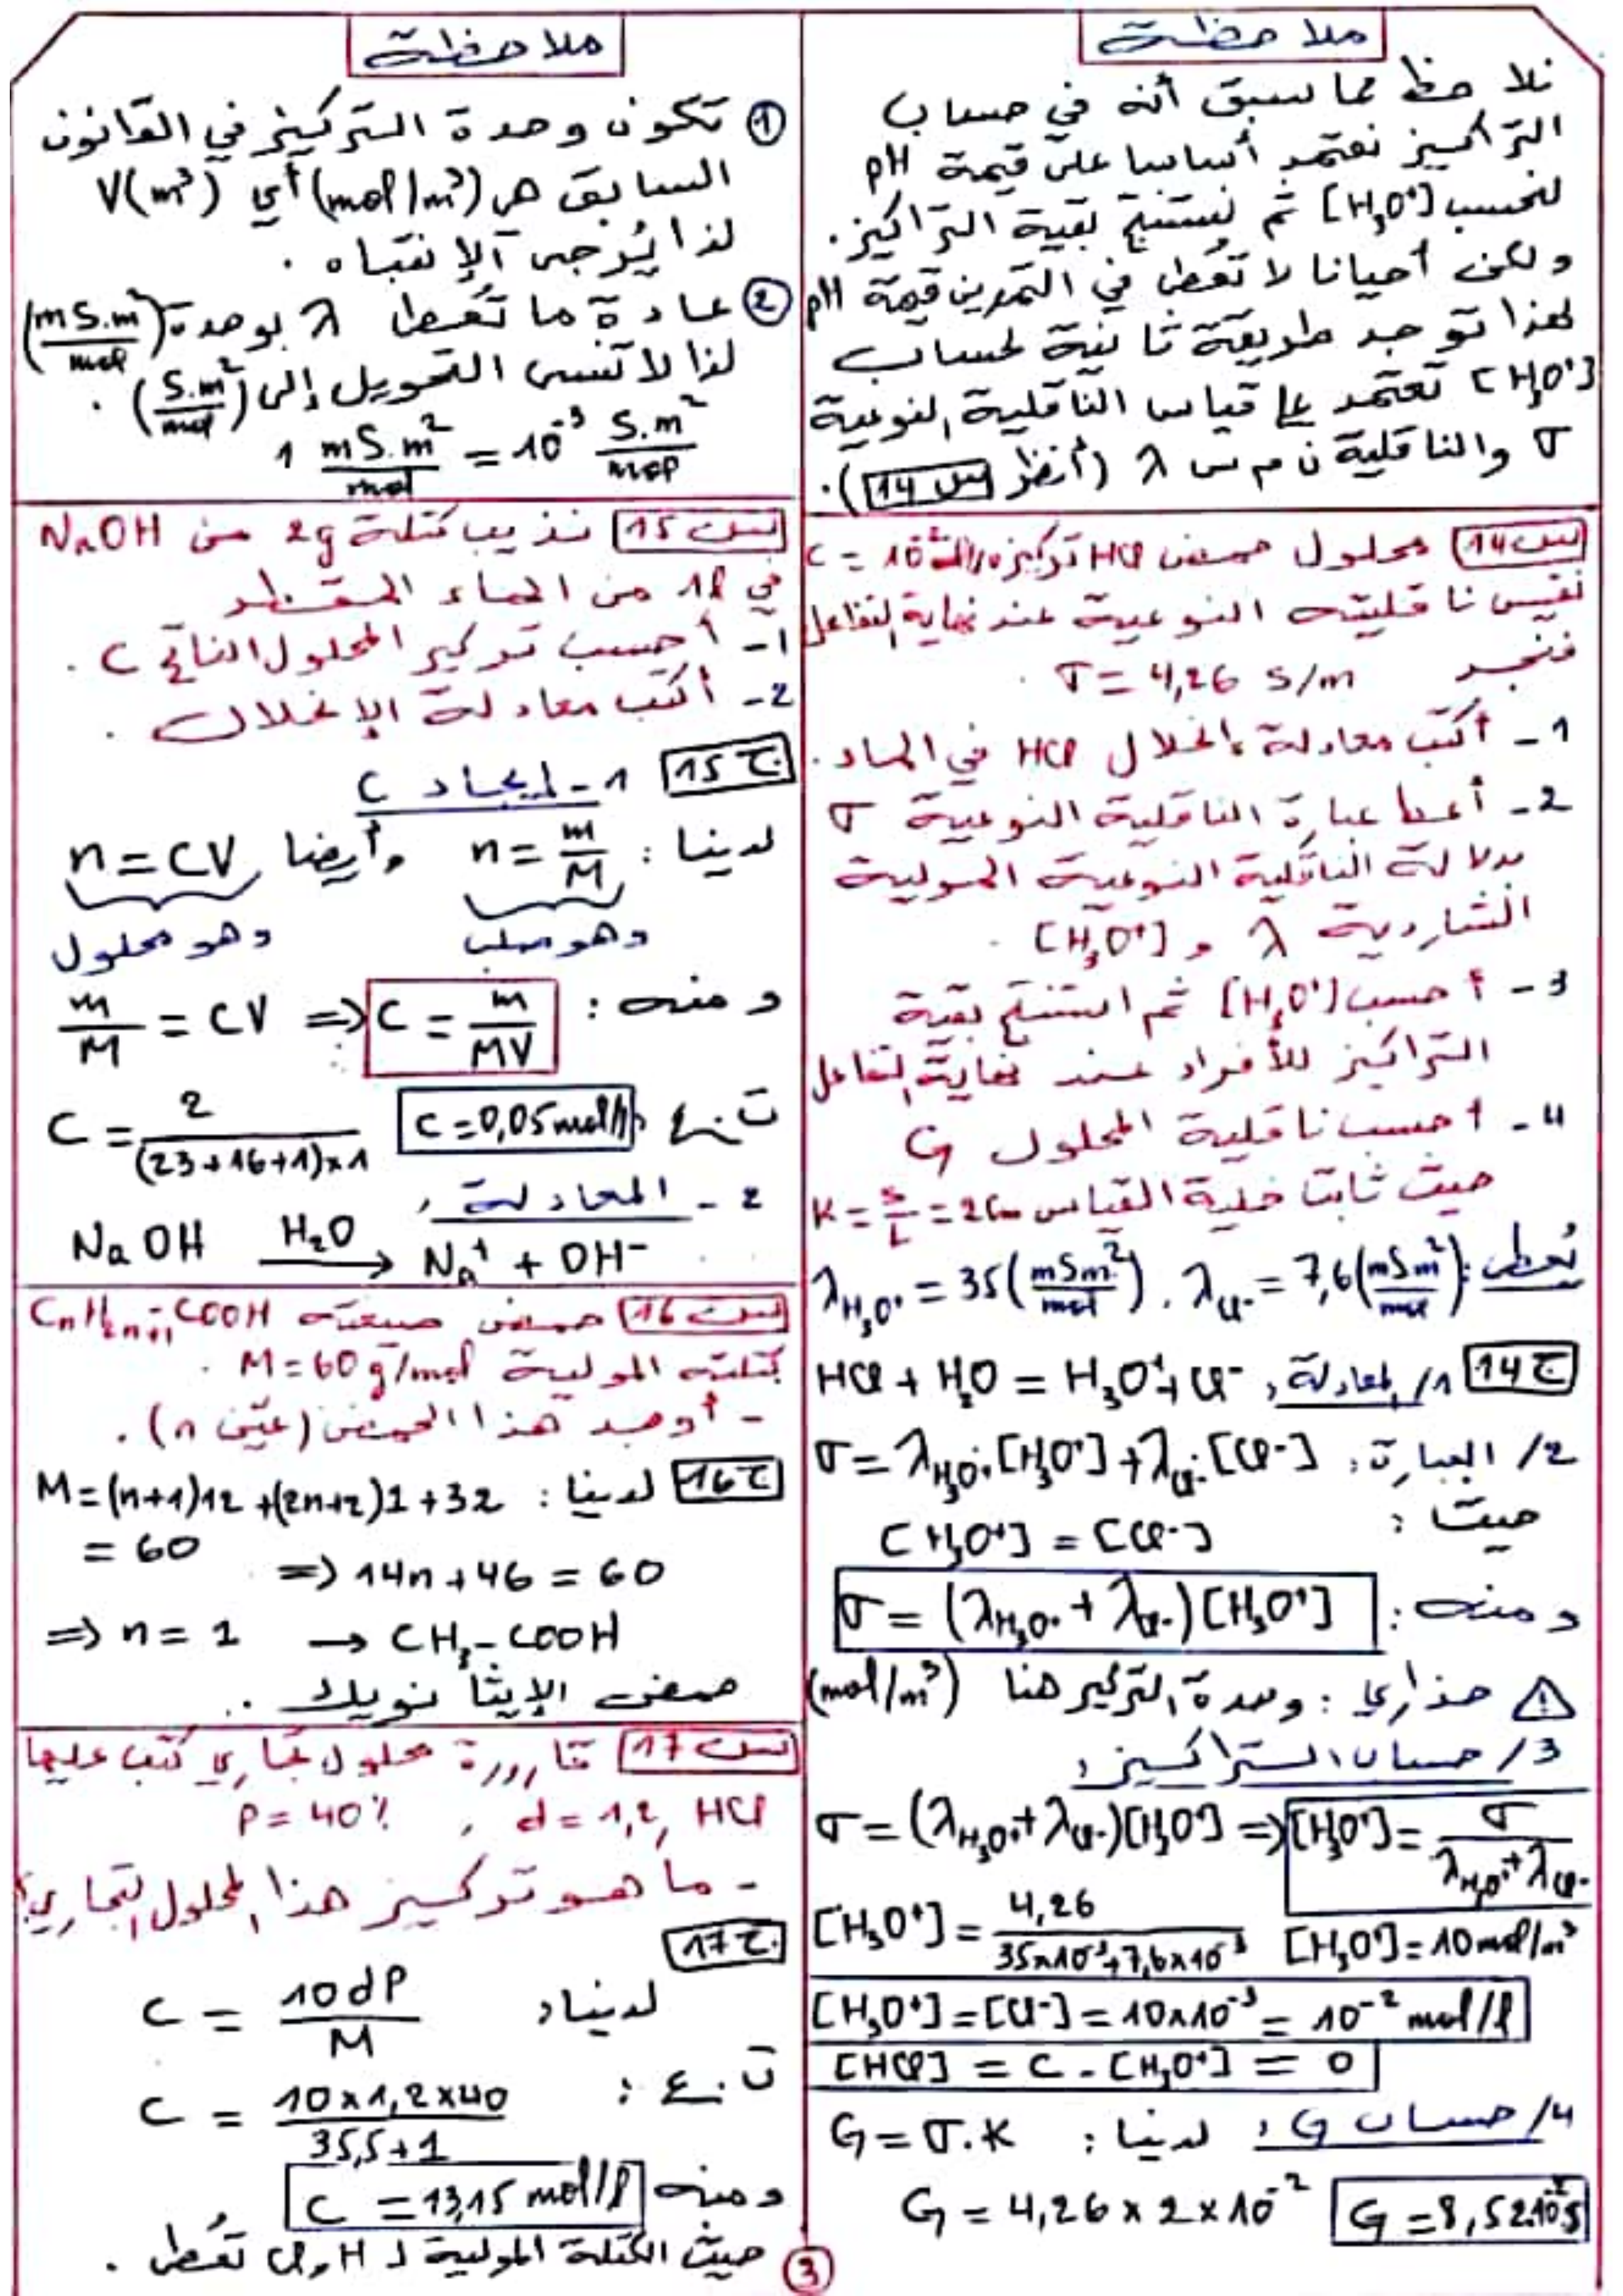 ملاحظة
نلاحظ مما سبق أنه في حساب
التراكيز نعتمد أساسا على قيمة pH
لنحسب [H₃O⁺] ثم نستنتج بقية التراكيز.
ولكن أحيانا لا تُعطى في التمرين قيمة pH
لهذا توجد طريقة ثانية لحساب
[H₃O⁺] تعتمد على قياس الناقلية النوعية
σ والناقلية ن م ش λ (أنظر س 14).
س 14 محلول حمض HCl تركيزه C = 10⁻²
نقيس ناقليته النوعية عند نهاية التفاعل
فنجد σ = 4,26 S/m .
1 - أكتب معادلة انحلال HCl في الماء.
2 - أعط عبارة الناقلية النوعية σ
بدلالة الناقلية النوعية المولية
الشاردية λ و [H₃O⁺] .
3 - أحسب [H₃O⁺] ثم استنتج بقية
التراكيز للأفراد عند نهاية التفاعل
4 - أحسب ناقلية المحلول G
حيث ثابت خلية القياس K = S/L = 2cm
تُعطى: λCl⁻ = 7,6 (mSm²/mol) . λH₃O⁺ = 35 (mSm²/mol)
ج 14 1/ المعادلة: HCl + H₂O = H₃O⁺ + Cl⁻
2/ العبارة: σ = λH₃O⁺.[H₃O⁺] + λCl⁻.[Cl⁻]
حيث :
[H₃O⁺] = [Cl⁻]
ومنه : σ = (λH₃O⁺ + λCl⁻)[H₃O⁺]
⚠ حذاري : وحدة التركيز هنا (mol/m³)
3/ حساب التراكيز :
σ = (λH₃O⁺ + λCl⁻)[H₃O⁺] ⇒ [H₃O⁺] = σ / λH₃O⁺ + λCl⁻
[H₃O⁺] = 4,26 / 35×10⁻³ + 7,6×10⁻³ [H₃O⁺] = 10 mol/m³
[H₃O⁺] = [Cl⁻] = 10×10⁻³ = 10⁻² mol/l
[HCl] = C - [H₃O⁺] = 0
4/ حساب G : لدينا : G = σ.K
G = 4,26 × 2 × 10⁻² G = 8,52.10⁻² S
ملاحظة
① تكون وحدة التركيز في القانون
السابق هي (mol/m³) أي V(m³)
لذا يُرجى الإنتباه .
② عادة ما تُعطى λ بوحدة (mS.m²/mol)
لذا لا تنسى التحويل إلى (S.m²/mol) .
1 mS.m²/mol = 10⁻³ S.m²/mol
س 15 نذيب كتلة 2g من NaOH
في 1l من الماء المقطر
1 - أحسب تركيز المحلول الناتج C .
2 - أكتب معادلة الإنحلال .
ج 15 1 - إيجاد C
لدينا : n = m/M وأيضا n = CV
وهو صلب وهو محلول
ومنه : m/M = CV ⇒ C = m/MV
ت.ع : C = 2 / (23+16+1)×1 C = 0,05 mol/l
2 - المعادلة :
NaOH H₂O → Na⁺ + OH⁻
س 16 حمض صيغته CnH2n+1-COOH
كتلته المولية M = 60 g/mol .
- أوجد هذا الحمض (عيّن n) .
ج 16 لدينا : M = (n+1)12 + (2n+2)1 + 32
= 60
⇒ 14n + 46 = 60
⇒ n = 1 → CH₃-COOH
حمض الإيثانويك .
س 17 قارورة محلول تجاري كتب عليها
HCl , d = 1,2 , P = 40%
- ما هو تركيز هذا المحلول التجاري؟
ج 17
لدينا : C = 10dP / M
ت.ع : C = 10×1,2×40 / 35,5+1
ومنه C = 13,15 mol/l
حيث الكتلة المولية لـ H و Cl تُعطى .
3